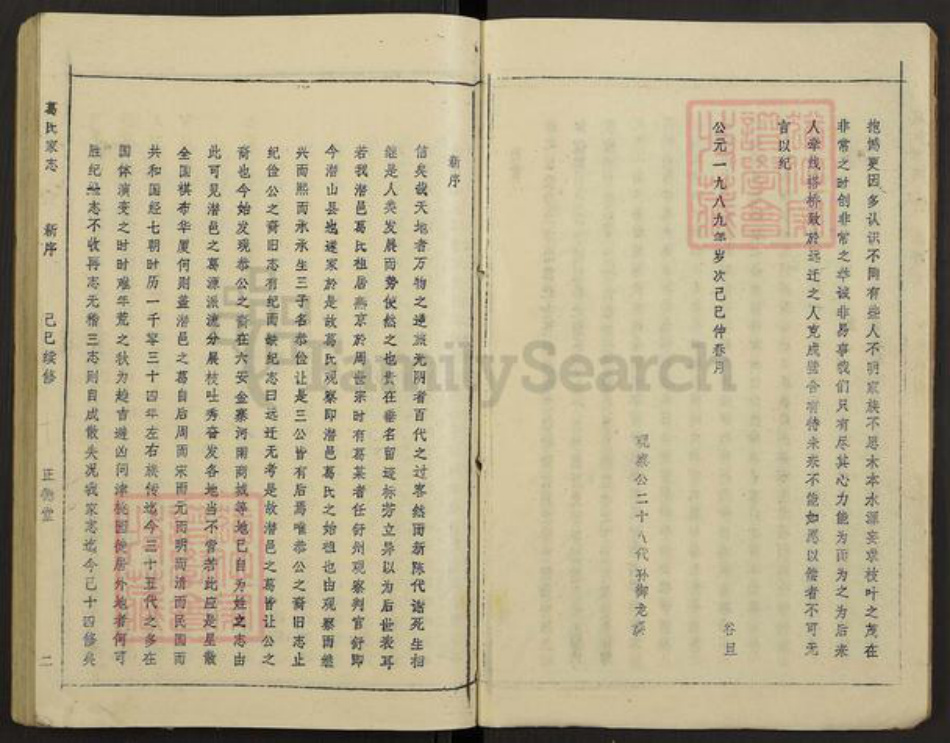 抱憾更因多认识不同有些人不明家族不思木本水源妄求枝叶之茂在
非常之时创非常之举诚非易事我们只有尽其心力能为而为之为后来
人牵线搭桥致於远迁之人克成璧合有待未来不能如愿以偿者不可无
言以纪
公元一九八九年岁次己巳仲春月 谷旦
观察公二十八代孙御龙谟
新序
信矣哉天地者万物之逆旅光阴者百代之过客然而新陈代谢死生相
继是人类发展而势使然之也贵在垂名留迹标芳立异以为后世表耳
若我潜邑葛氏祖居燕京於周世宗时有葛某者任舒州观察判官舒即
今潜山县也遂家於是故葛氏观察即潜邑葛氏之始祖也由观察而继
兴而熙而承承生三子名恭俭让是三公皆有后焉唯恭公之裔旧志止
纪俭公之裔旧志有纪而缺纪志曰远迁无考是故潜邑之葛皆让公之
裔也今始发现恭公之裔在六安金寨河南商城等地已自为姓之志由
此可见潜邑之葛源派流分展枝吐秀奋发各地当不啻若此应是星散
全国棋布华厦何则盖潜邑之葛自后周而宋而元而明而清而民国而
共和国经七朝时历一千零三十四年左右族传迄今三十五代之多在
国体演变之时时难年荒之秋为趋吉避凶问津桃园徙居外地者何可
胜纪一志不收再志无稽三志则自成散失况我家志迄今已十四修矣
葛氏家志 新序 己巳续修 正伦堂 二
FamilySearch